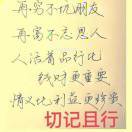 再穷不坑朋友
再富不忘恩人
人活着品行比
钱财更重要
情义比利益更珍贵
切记且行